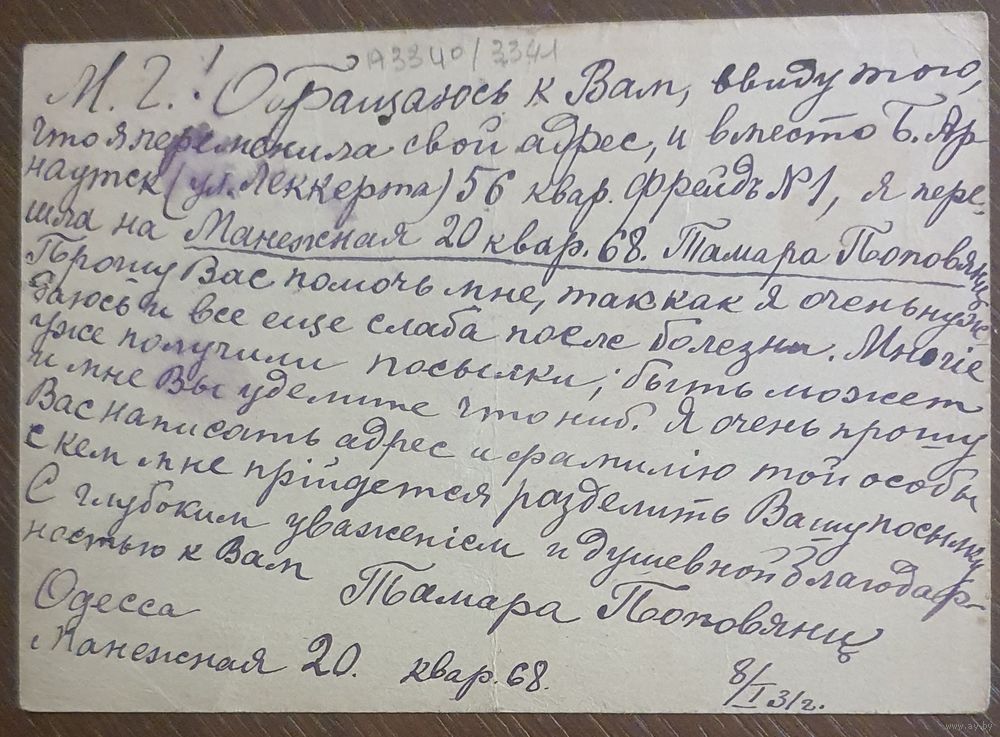 А3340/3341
М. Г.! Обращаюсь к Вам, ввиду того,
что я переменила свой адрес, и вместо Б. Ар
наутск (ул. Леккерта) 56 квар. Фрейдъ №1, я пере-
шла на Манежная 20 квар. 68. Тамара Поповянцъ
Прошу Вас помочь мне, так как я очень нуж-
даюсь и все еще слаба после болезни. Многіе
уже получили посылки; быть может
и мне Вы уделите что ниб. Я очень прошу
Вас написать адрес и фамилію той особы
с кем мне прійдется разделить Вашу посылку
С глубоким уваженіем и душевной благодар-
ностью к Вам Тамара Поповянц
Одесса
Манежная 20. квар. 68. 8/I 31г.
www.ay.by